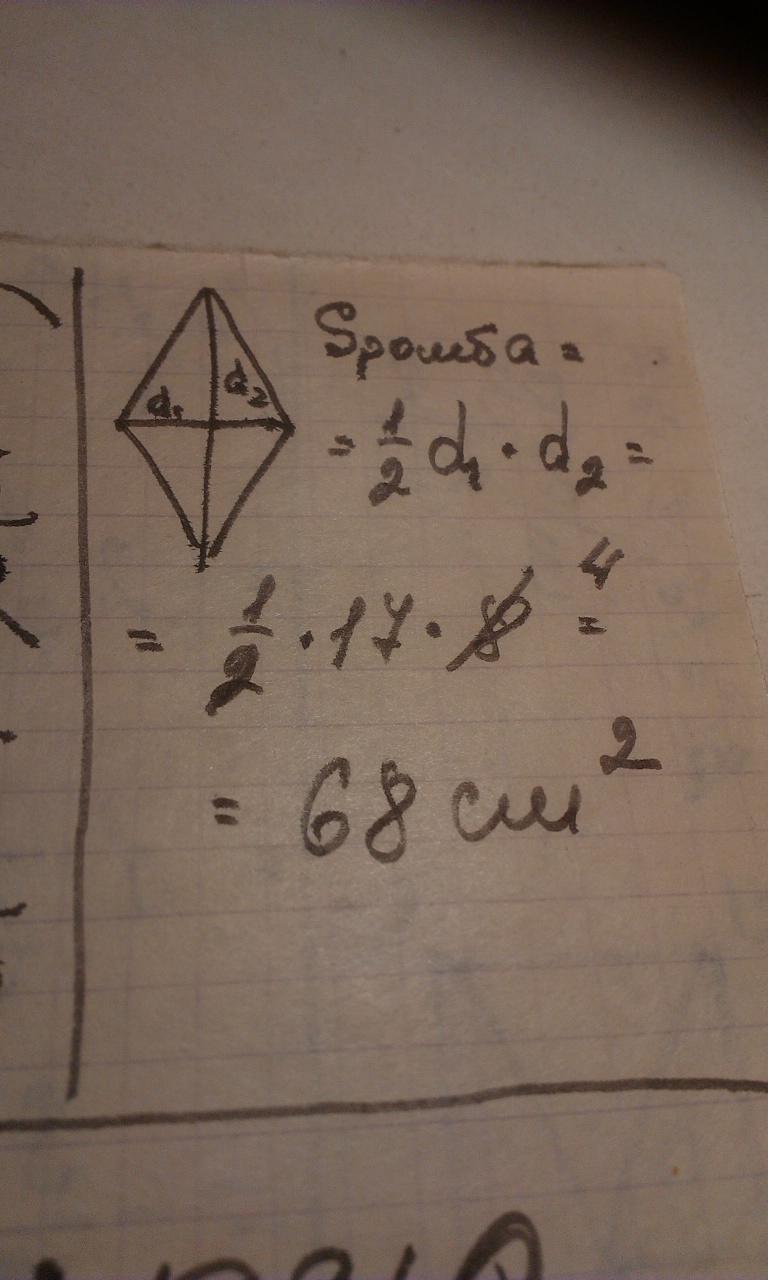 d₁ d₂
Sромба =
= 1/2 d₁ · d₂ =
4
= 1/2 · 17 · 8 =
= 68 см²